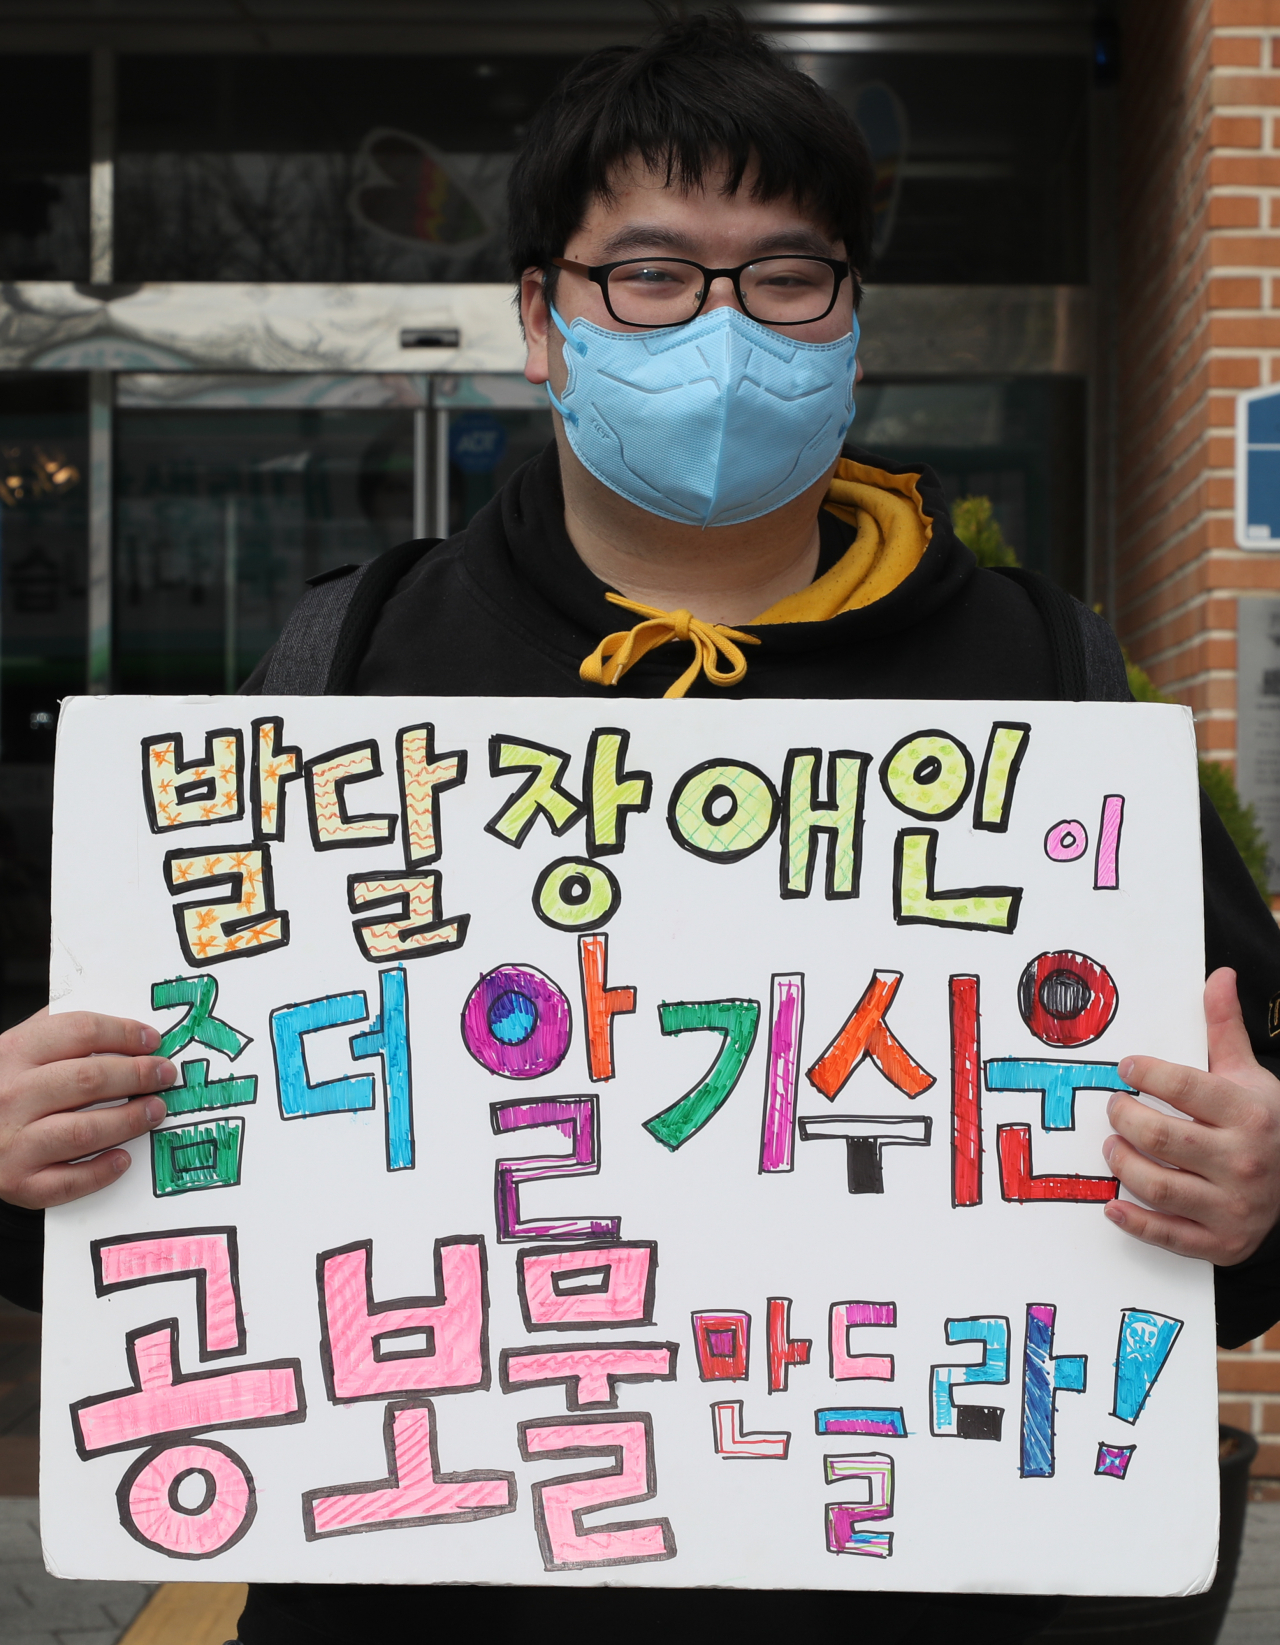 발달장애인이
좀더 알기쉬운
공보물 만들라!
ADT